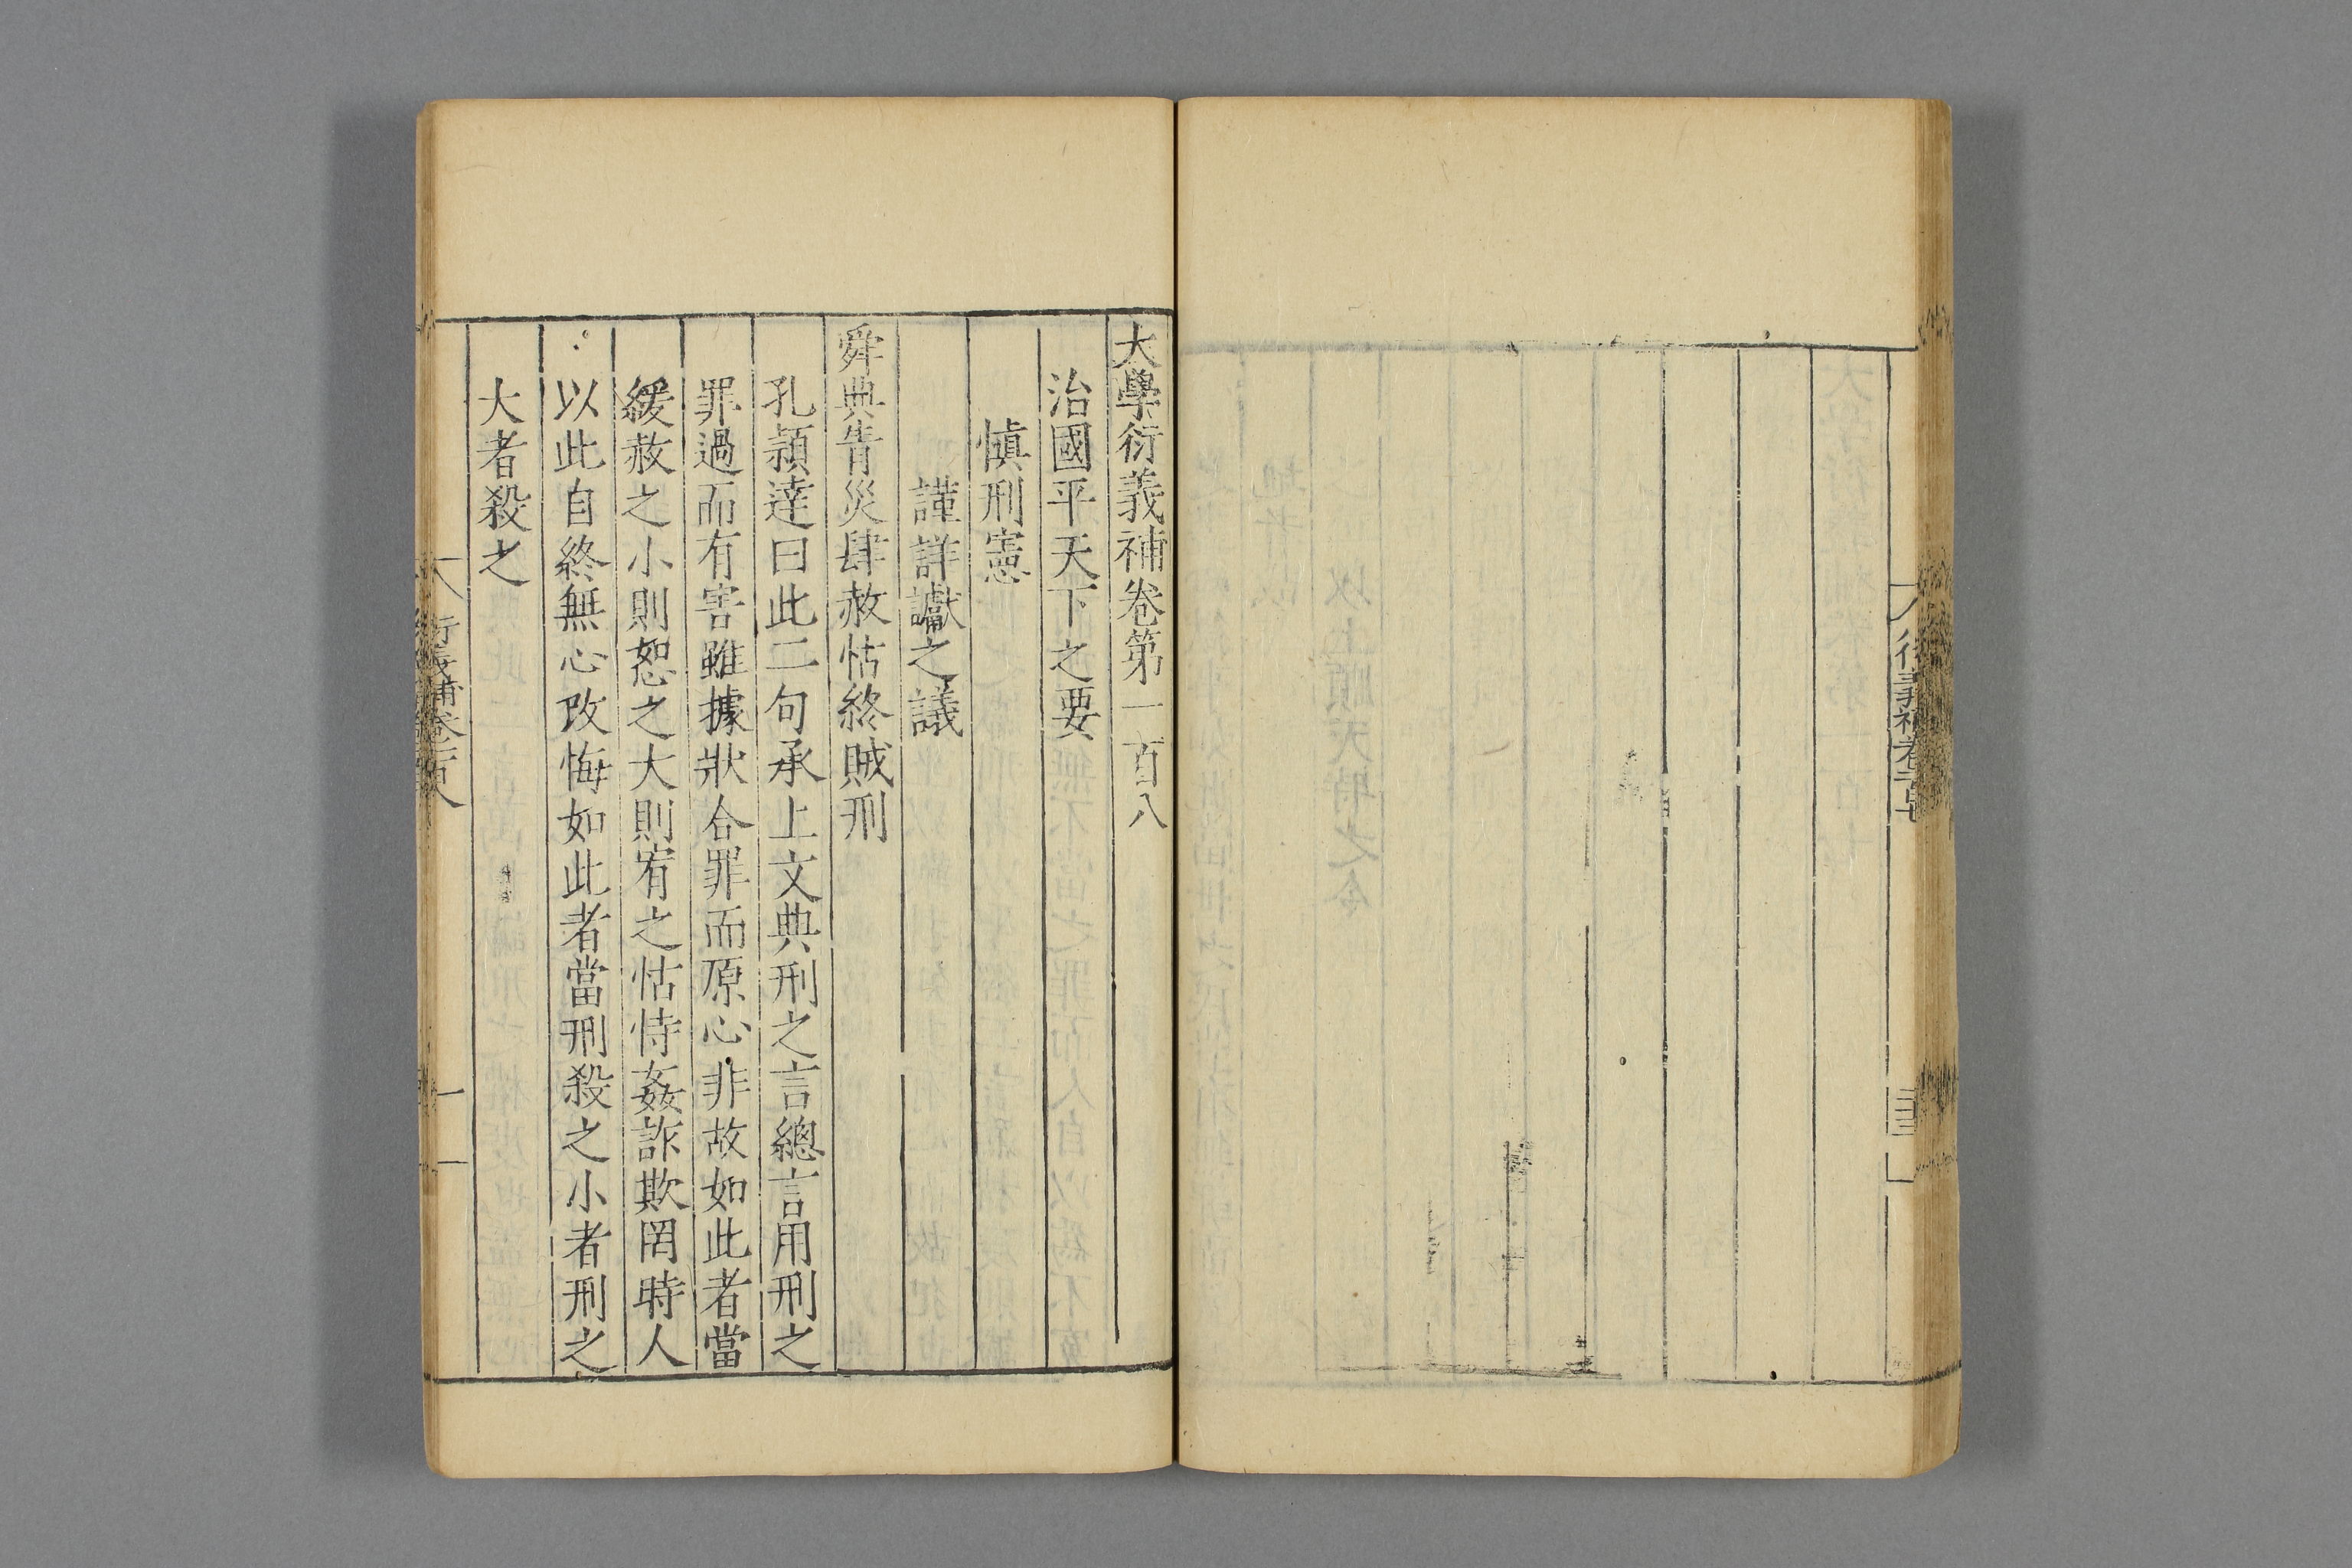 大學衍義補卷第一百八
治國平天下之要
愼刑憲
謹詳讞之議
舜典眚災肆赦怙終賊刑
孔頴達曰此二句承上文典刑之言總言用刑之
罪過而有害雖據狀合罪而原心非故如此者當
緩赦之小則恕之大則宥之怙恃姦詐欺罔時人
以此自終無心改悔如此者當刑殺之小者刑之
大者殺之